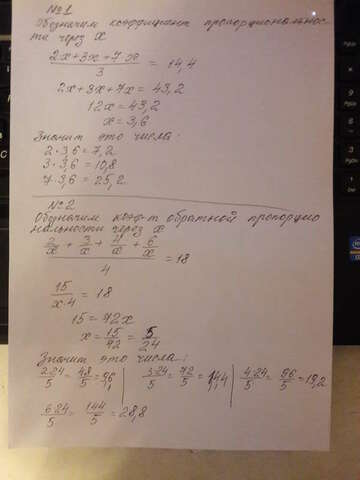 №1
Обозначим коэффициент пропорционально
сти через x
2x+3x+7x / 3 = 14,4
2x+3x+7x = 43,2
12x = 43,2
x = 3,6
Значит это числа:
2·3,6=7,2
3·3,6=10,8
7·3,6=25,2
№2
Обозначим коэф-т обратной пропорцио
нальности через x
2/x + 3/x + 4/x + 6/x / 4 = 18
15 / x·4 = 18
15 = 72x
x = 15/72 = 5/24
Значит это числа:
2·24/5 = 48/5 = 9,6 | 3·24/5 = 72/5 = 14,4 | 4·24/5 = 96/5 = 19,2
6·24/5 = 144/5 = 28,8